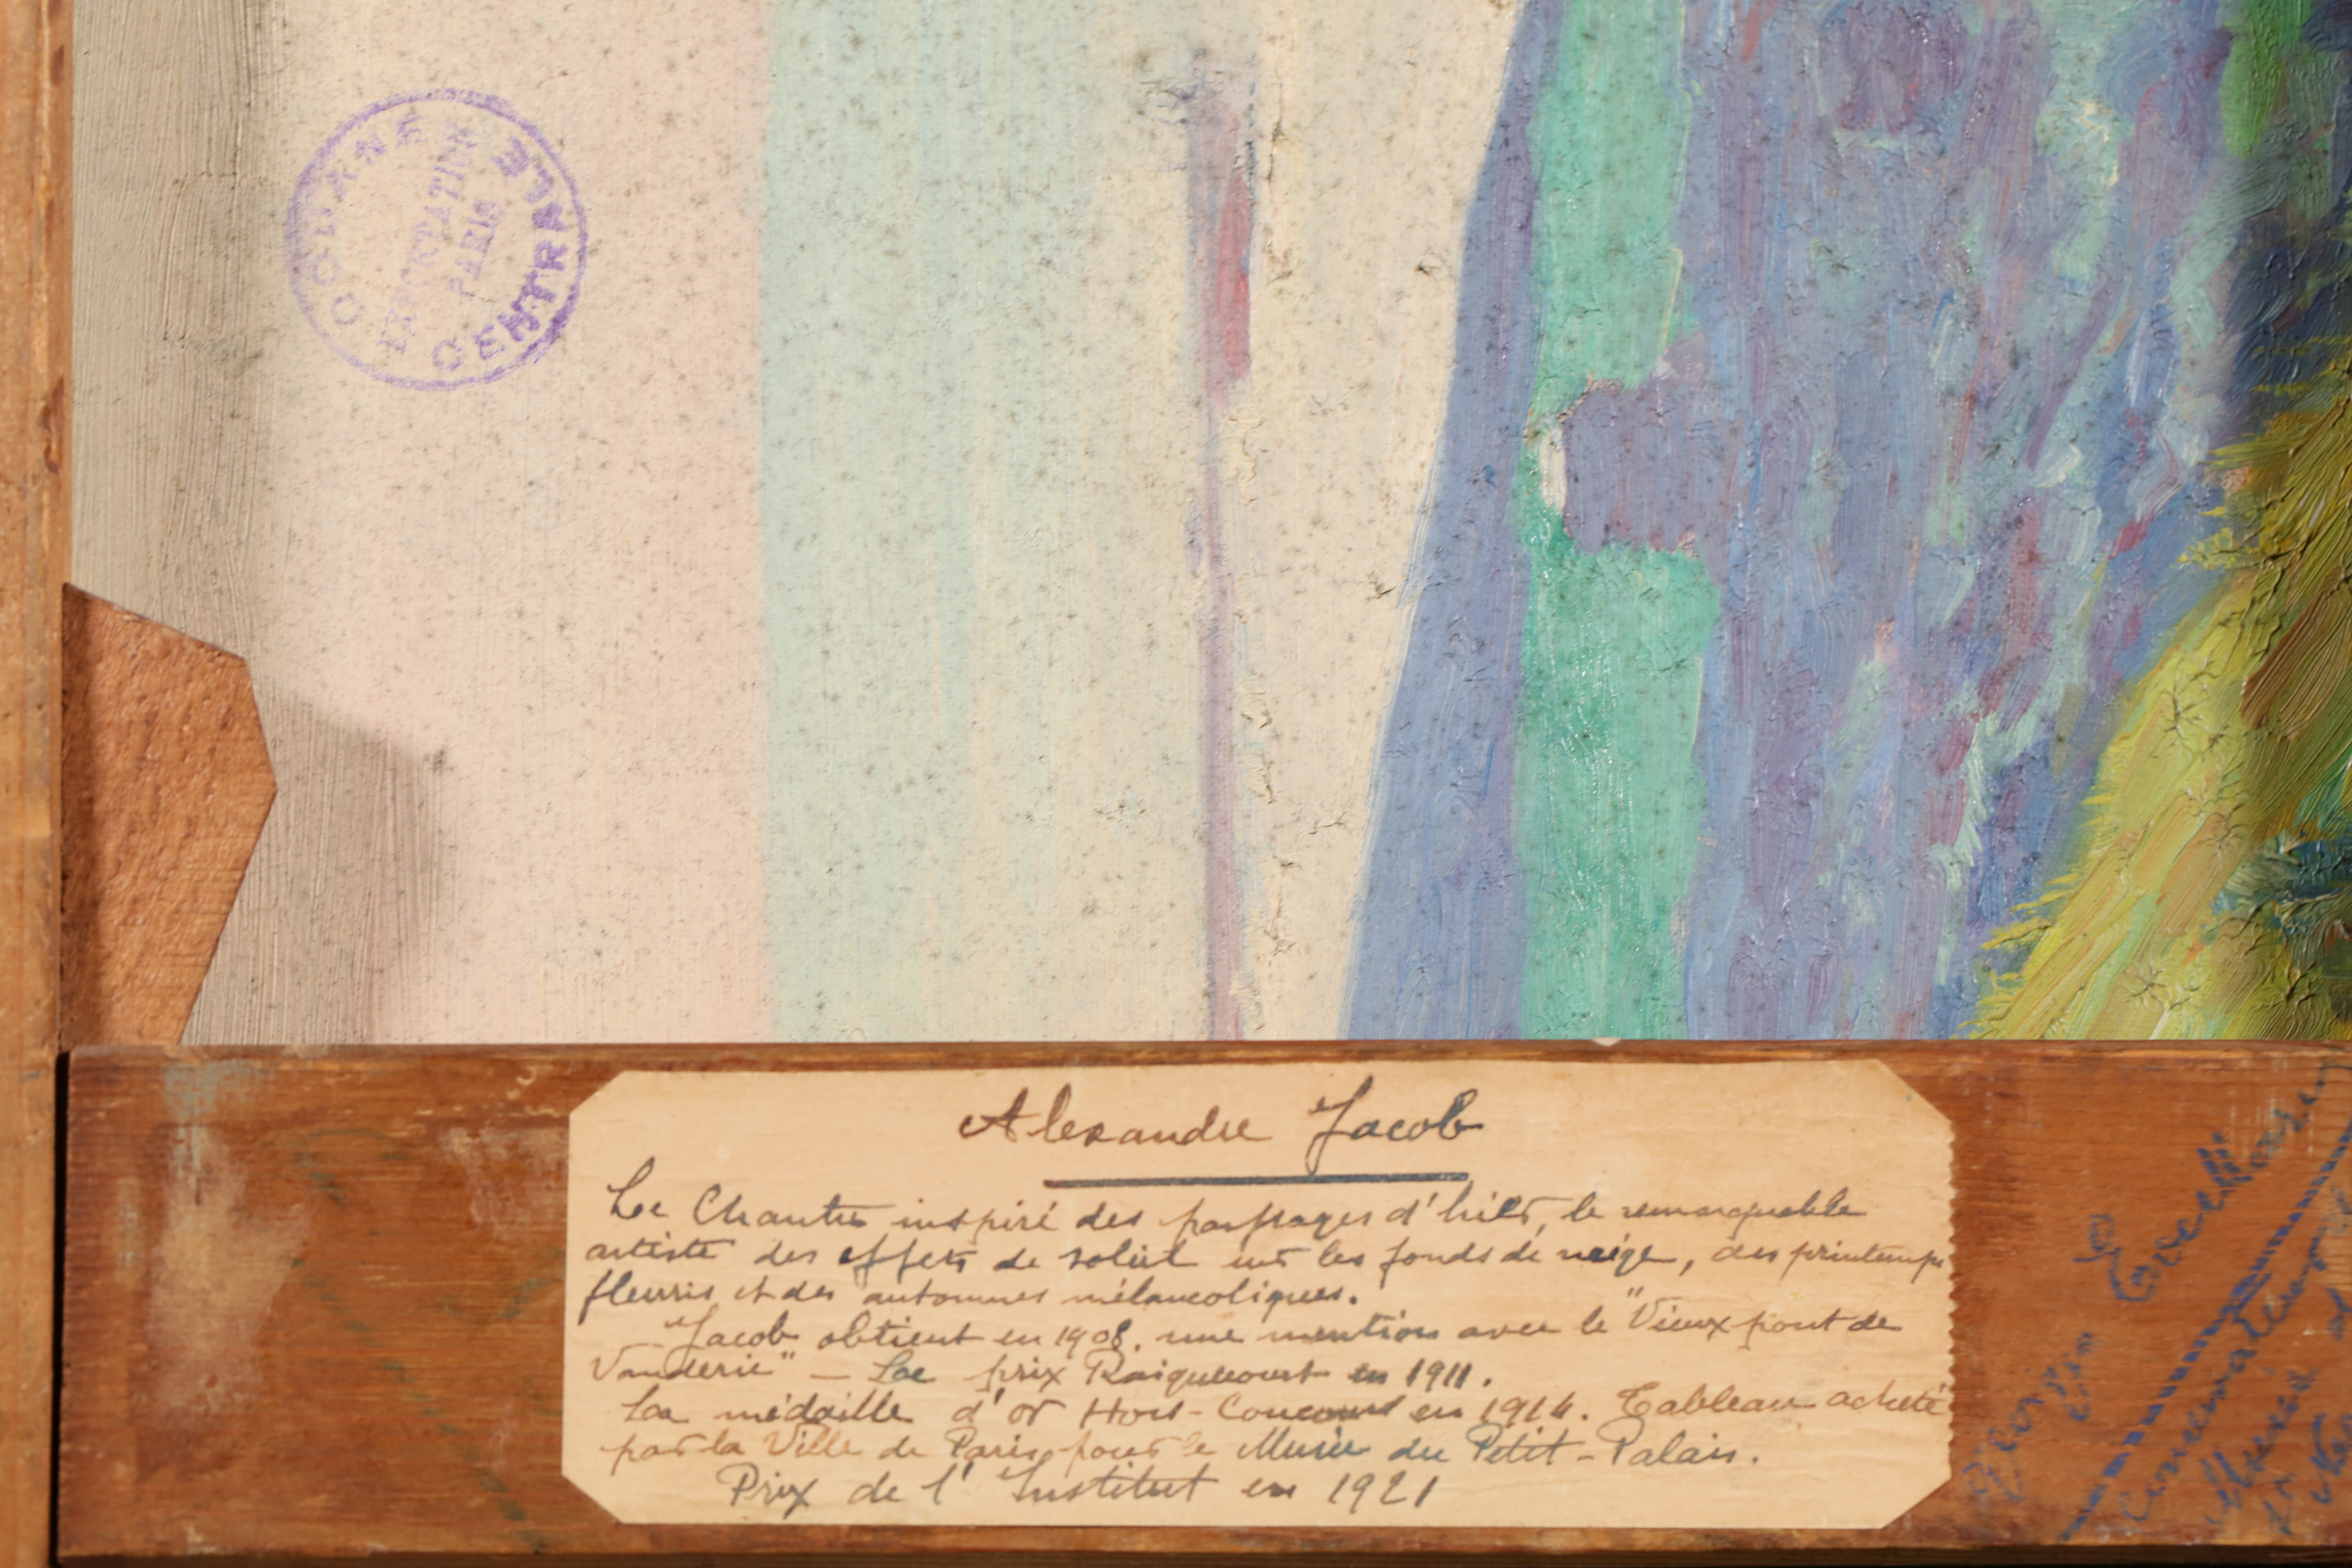 DOUANE CENTRALE
EXPORTATION
PARIS
Alexandre Jacob
Le Chantre inspiré des paysages d'hiver, le remarquable
artiste des effets de soleil sur les fonds de neige, des printemps
fleuris et des automnes mélancoliques.
Jacob obtient en 1908. une mention avec le "Vieux pont de
Vanderie" — Le prix Raigecourt en 1911.
La médaille d'or Hors-Concours en 1914. Tableau acheté
par la Ville de Paris pour le Musée du Petit-Palais.
Prix de l'Institut en 1921